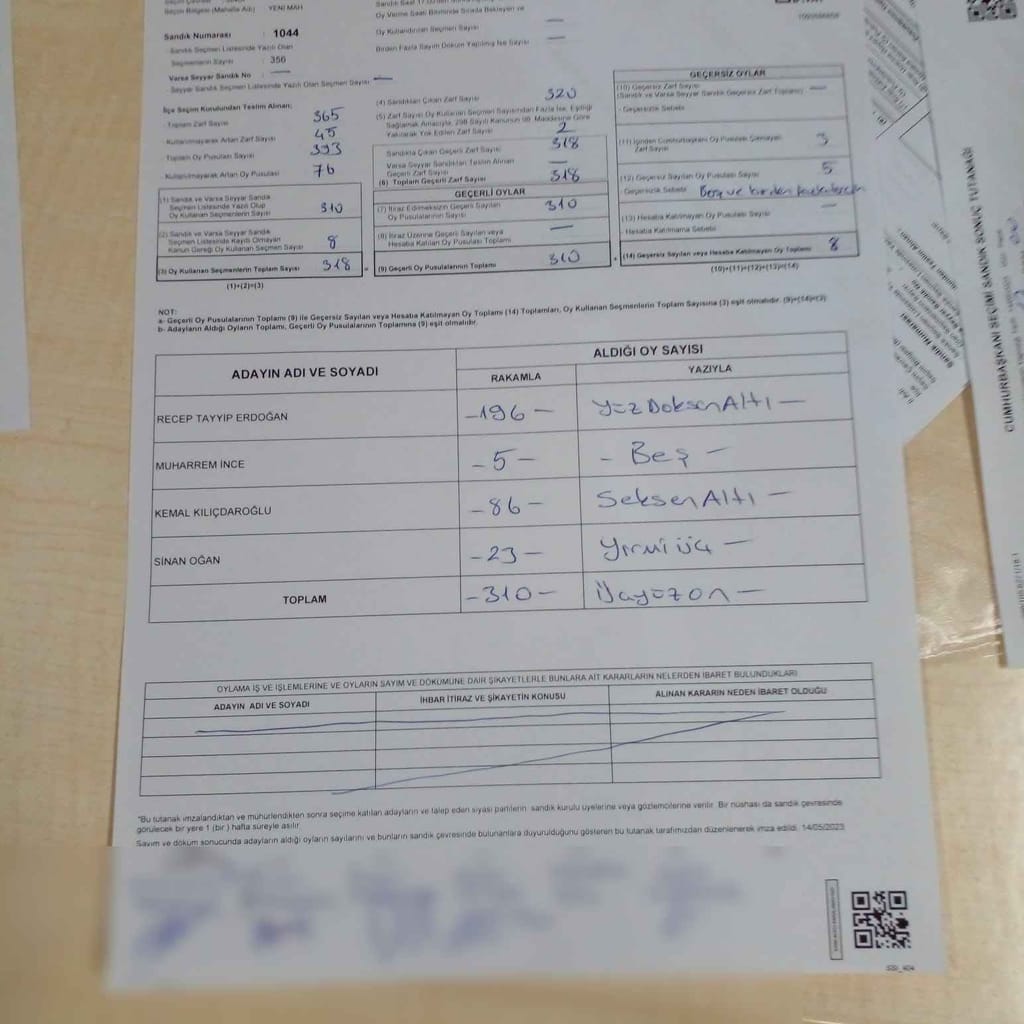 Seçim Bölgesi (Mahalle Adı) : YENİ MAH
Sandık Numarası : 1044
- Sandık Seçmen Listesinde Yazılı Olan
Seçmenlerin Sayısı : 356
Varsa Seyyar Sandık No : —
- Seyyar Sandık Seçmen Listesinde Yazılı Olan Seçmen Sayısı —
İlçe Seçim Kurulundan Teslim Alınan;
- Toplam Zarf Sayısı 365
- Kullanılmayarak Artan Zarf Sayısı 45
- Toplam Oy Pusulası Sayısı 393
- Kullanılmayarak Artan Oy Pusulası 76
(1) Sandık ve Varsa Seyyar Sandık
Seçmen Listesinde Yazılı Olup
Oy Kullanan Seçmenlerin Sayısı 310
(2) Sandık ve Varsa Seyyar Sandık
Seçmen Listesinde Kayıtlı Olmayan
Kanun Gereği Oy Kullanan Seçmen Sayısı 8
(3) Oy Kullanan Seçmenlerin Toplam Sayısı 318 =
(1)+(2)=(3)
Oy Verme Saati Bitiminde Sırada Bekleyen ve
Oy Kullandırılan Seçmen Sayısı —
Birden Fazla Sayım Döküm Yapılmış İse Sayısı —
(4) Sandıktan Çıkan Zarf Sayısı 320
(5) Zarf Sayısı Oy Kullanan Seçmen Sayısından Fazla İse, Eşitliği
Sağlamak Amacıyla, 298 Sayılı Kanunun 98. Maddesine Göre
Yakılarak Yok Edilen Zarf Sayısı 2
Sandıkta Çıkan Geçerli Zarf Sayısı 318
Varsa Seyyar Sandıktan Teslim Alınan
Geçerli Zarf Sayısı —
(6) Toplam Geçerli Zarf Sayısı 318
GEÇERLİ OYLAR
(7) İtiraz Edilmeksizin Geçerli Sayılan
Oy Pusulalarının Sayısı 310
(8) İtiraz Üzerine Geçerli Sayılan veya
Hesaba Katılan Oy Pusulası Toplamı —
(9) Geçerli Oy Pusulalarının Toplamı 310 +
GEÇERSİZ OYLAR
(10) Geçersiz Zarf Sayısı
(Sandık ve Varsa Seyyar Sandık Geçersiz Zarf Toplamı) —
- Geçersizlik Sebebi
(11) İçinden Cumhurbaşkanı Oy Pusulası Çıkmayan
Zarf Sayısı 3
(12) Geçersiz Sayılan Oy Pusulası Sayısı 5
- Geçersizlik Sebebi Boş ve birden
(13) Hesaba Katılmayan Oy Pusulası Sayısı —
- Hesaba Katılmama Sebebi
(14) Geçersiz Sayılan veya Hesaba Katılmayan Oy Toplamı 8
(10)+(11)+(12)+(13)=(14)
NOT:
a- Geçerli Oy Pusulalarının Toplamı (9) ile Geçersiz Sayılan veya Hesaba Katılmayan Oy Toplamı (14) Toplamları, Oy Kullanan Seçmenlerin Toplam Sayısına (3) eşit olmalıdır. (9)+(14)=(3)
b- Adayların Aldığı Oyların Toplamı, Geçerli Oy Pusulalarının Toplamına (9) eşit olmalıdır.
ADAYIN ADI VE SOYADI
ALDIĞI OY SAYISI
RAKAMLA YAZIYLA
RECEP TAYYİP ERDOĞAN -196- YüzDoksenAltı -
MUHARREM İNCE -5- - Beş -
KEMAL KILIÇDAROĞLU -86- SeksenAltı -
SİNAN OĞAN -23- Yirmi üç -
TOPLAM -310- Üçyüzon -
OYLAMA İŞ VE İŞLEMLERİNE VE OYLARIN SAYIM VE DÖKÜMÜNE DAİR ŞİKAYETLERLE BUNLARA AİT KARARLARIN NELERDEN İBARET BULUNDUKLARI
ADAYIN ADI VE SOYADI İHBAR İTİRAZ VE ŞİKAYETİN KONUSU ALINAN KARARIN NEDEN İBARET OLDUĞU
*Bu tutanak imzalandıktan ve mühürlendikten sonra seçime katılan adayların ve talep eden siyasi partilerin sandık kurulu üyelerine veya gözlemcilerine verilir. Bir nüshası da sandık çevresinde
görülecek bir yere 1 (bir) hafta süreyle asılır.
Sayım ve döküm sonucunda adayların aldığı oyların sayılarını ve bunların sandık çevresinde bulunanlara duyurulduğunu gösteren bu tutanak tarafımızdan düzenlenerek imza edildi. 14/05/2023
CUMHURBAŞKANI SEÇİMİ SANDIK SONUÇ TUTANAĞI